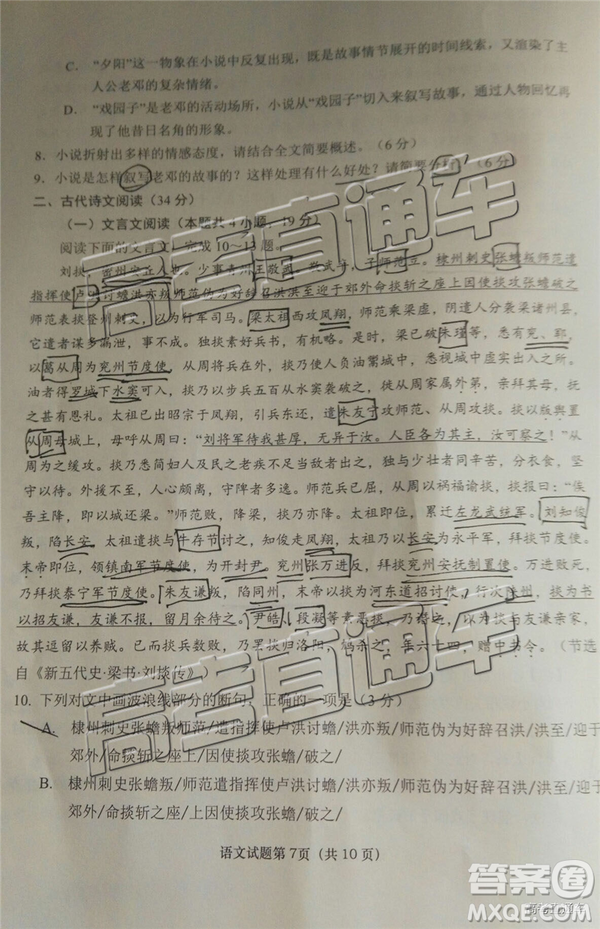 C. “夕阳”这一物象在小说中反复出现，既是故事情节展开的时间线索，又渲染了主
人公老邓的复杂情绪。
D. “戏园子”是老邓的活动场所，小说从“戏园子”切入来叙写故事，通过人物回忆再
现了他昔日名角的形象。
8. 小说折射出多样的情感态度，请结合全文简要概述。（6分）
9. 小说是怎样叙写老邓的故事的？这样处理有什么好处？请简要分析。（6分）
二、古代诗文阅读（34分）
（一）文言文阅读（本题共4小题，19分）
阅读下面的文言文，完成10～13题。
刘捘，密州安丘人。少事青州王敬武，敬武卒，子师范立。棣州刺史张蟾叛师范遣
指挥使卢洪讨蟾洪亦叛师范伪为好辞召洪洪至迎于郊外命捘斩之座上因使捘攻张蟾破之
师范表捘登州刺史，以为行军司马。梁太祖西攻凤翔，师范乘梁虚，阴遣人分袭梁诸州县，
它遣者谋多漏泄，事不成。独捘素好兵书，有机略。是时，梁已破朱瑾等，悉有兖、郓，
以葛从周为兖州节度使。从周将兵在外，捘乃使人负油鬻城中，悉视城中虚实出入之所。
油者得罗城下水窦，捘乃以步兵五百从水窦袭破之，徙从周家属外第，亲拜其母，抚之
甚有恩礼。太祖已出昭宗于凤翔，引兵东还，遣朱友宁攻师范、从周攻捘。捘以版舆置
从周母城上，母呼从周曰：“刘将军待我甚厚，无异于汝。人臣各为其主，汝可察之！”从
周为之缓攻。捘乃悉简妇人及民之老疾不足当敌者出之，独与少壮者同辛苦，分衣食，坚
守以待。外援不至，人心颇离，守陴者多逸。师范兵已屡败，从周以祸福谕捘，捘报曰：“俟
吾主降，即以城还梁。”师范败，降梁，捘乃亦降。太祖即位，累迁左龙武统军。刘知俊
叛，陷长安，太祖遣捘与牛存节讨之，知俊走凤翔，太祖乃以长安为永平军，拜捘节度使。
末帝即位，领镇南军节度使，为开封尹。兖州张万进反，拜捘兖州安抚制置使。万进败死，
乃拜捘泰宁军节度使。朱友谦叛，陷同州，末帝以捘为河东道招讨使，行次陕州，捘为书
以招友谦，友谦不报，留月余待之。尹皓、段凝等素恶捘，乃
故其逗留以养贼。已而捘兵数败，乃罢捘归洛阳，鸩杀之，年六十四，赠中书令。（节选
自《新五代史·梁书·刘捘传》）
10. 下列对文中画波浪线部分的断句，正确的一项是（3分）
A. 棣州刺史张蟾叛师范/遣指挥使卢洪讨蟾/洪亦叛/师范伪为好辞召洪/洪至/迎于
郊外/命捘斩之座上/因使捘攻张蟾/破之/
B. 棣州刺史张蟾叛/师范遣指挥使卢洪讨蟾/洪亦叛/师范伪为好辞召洪/洪至/迎于
郊外/命捘斩之座/上因使捘攻张蟾/破之/
语文试题第7页（共10页）
高考直通车
高考直通车
答案圈